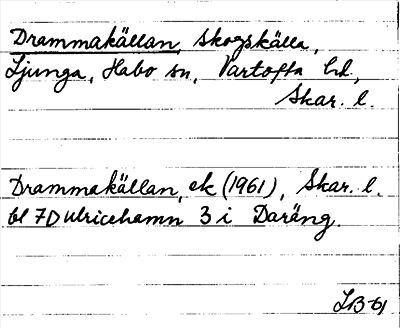 Drammakällan, skogskälla,
Ljunga, Habo sn, Vartofta hd,
Skar. l.
Drammakällan, ek (1961), Skar. l.
bl 7D Ulricehamn 3 i Daräng.
LB-61